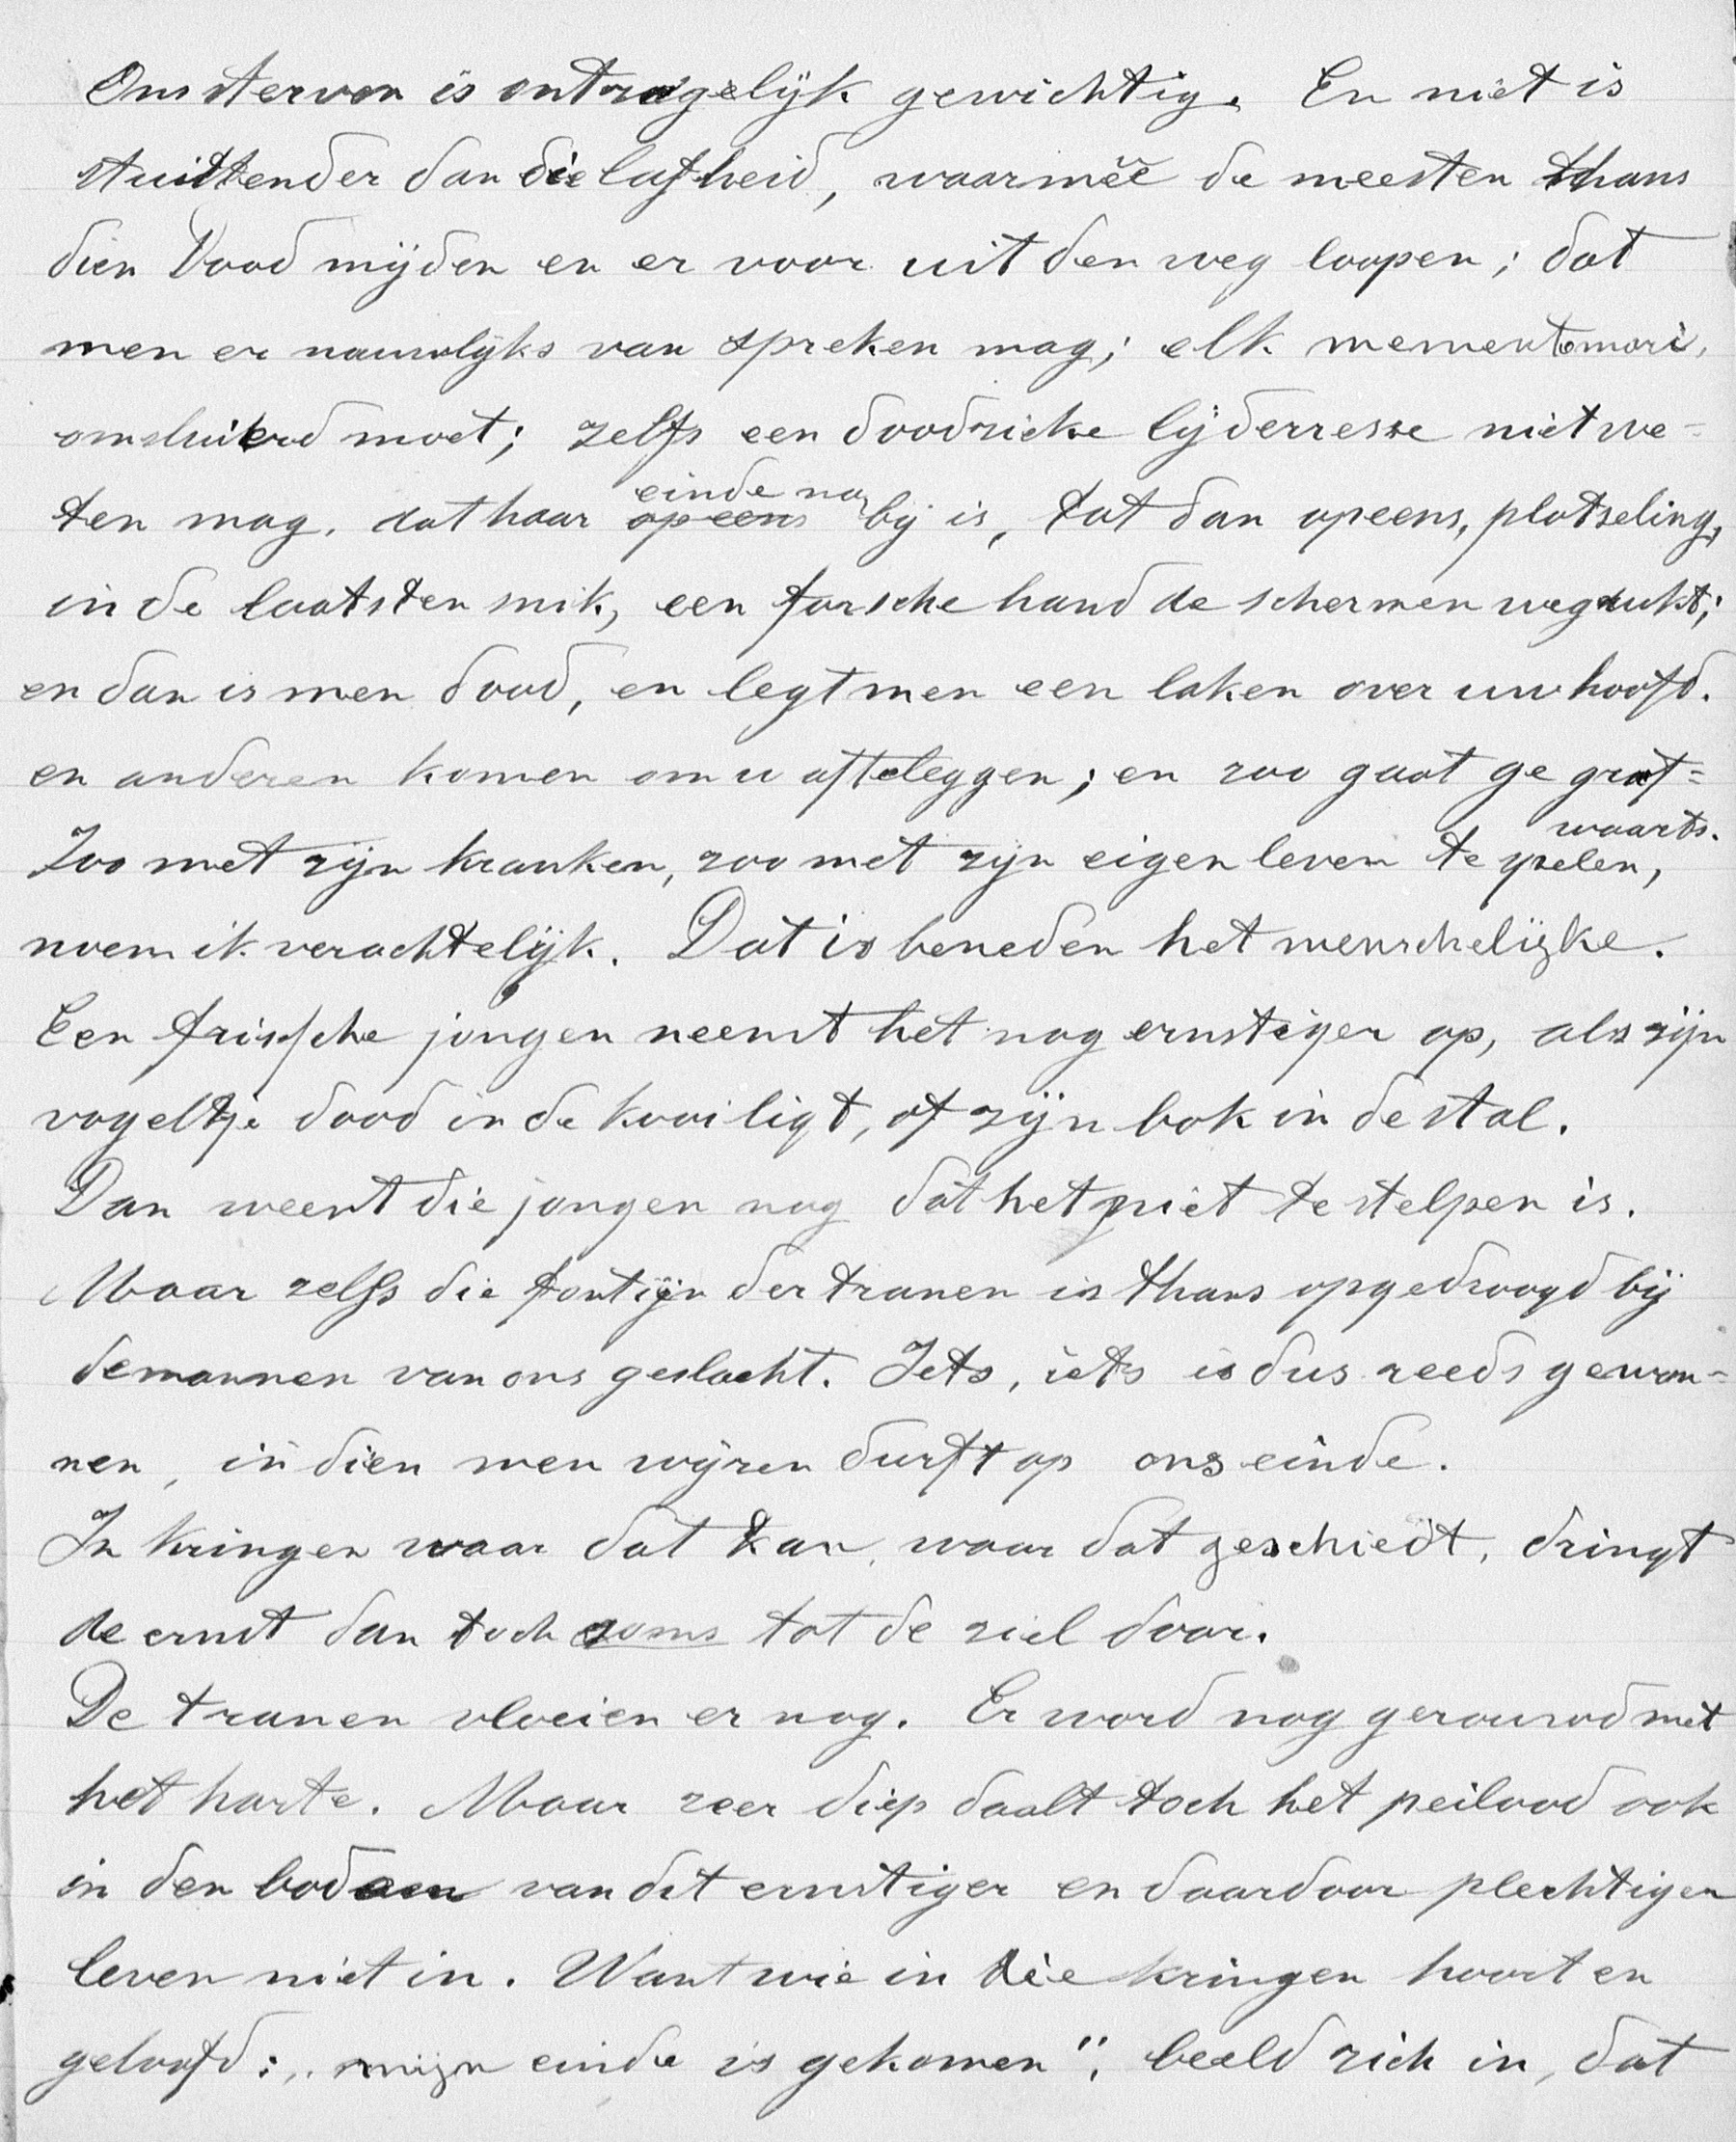 Ons sterven is ontzagelijk gewichtig. En niet is
stuittender dan die lafheid, waarmêe de meesten thans
dien Dood mijden en er voor uit den weg loopen; dat
men er nauwlijks van spreken mag; elk memento mori,
omsluierd moet; zelfs een doodzieke lijderresse niet we-
ten mag, dat haar ~~opeens~~ einde na bij is, tot dan opeens, plotseling,
in de laatsten snik, een forsche hand de schermen wegrukt;
en dan is men dood, en legt men een laken over uw hoofd.
en anderen komen om u afteleggen; en zoo gaat ge graf=
waarts.
Zoo met zijn kranken, zoo met zijn eigen leven te spelen,
noem ik verachtelijk. Dat is beneden het menschelijke.
Een frissche jongen neemt het nog ernstiger op, als zijn
vogeltje dood in de kooi ligt, of zijn bok in de stal.
Dan weent die jongen nog dat het niet te stelpen is.
Maar zelfs die fontijn der tranen is thans opgedroogd bij
de mannen van ons geslacht. Iets, iets is dus reeds gewon=
nen, in dien men wijzen durft op ons einde.
In kringen waar dat kan, waar dat geschiedt, dringt
de ernst dan toch soms tot de ziel door.
De tranen vloeien er nog. Er word nog gerouwd met
het harte. Maar zeer diep daalt toch het peilood ook
in den bodem van dit ernstiger en daardoor plechtiger
leven niet in. Want wie in die kringen hoort en
geloofd: „mijn einde is gekomen", beeld zich in, dat